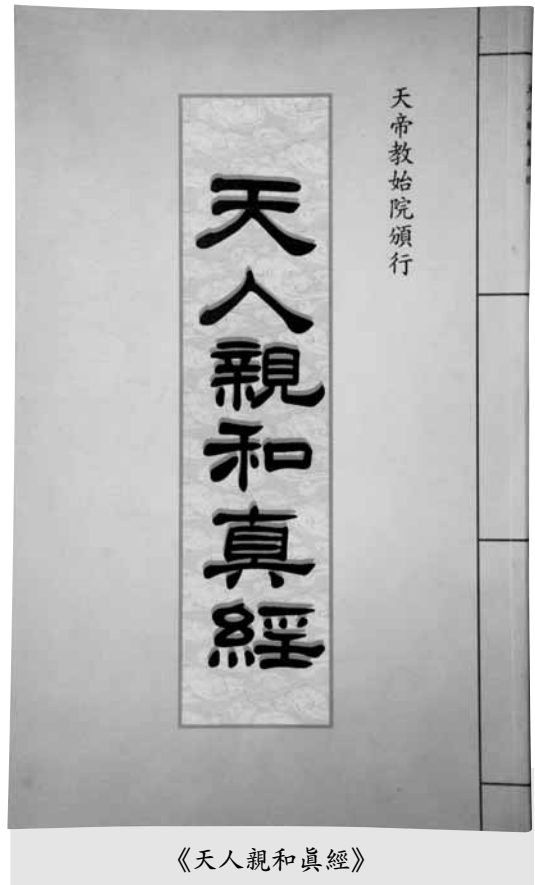 天帝教始院頒行
天人親和真經
《天人親和眞經》